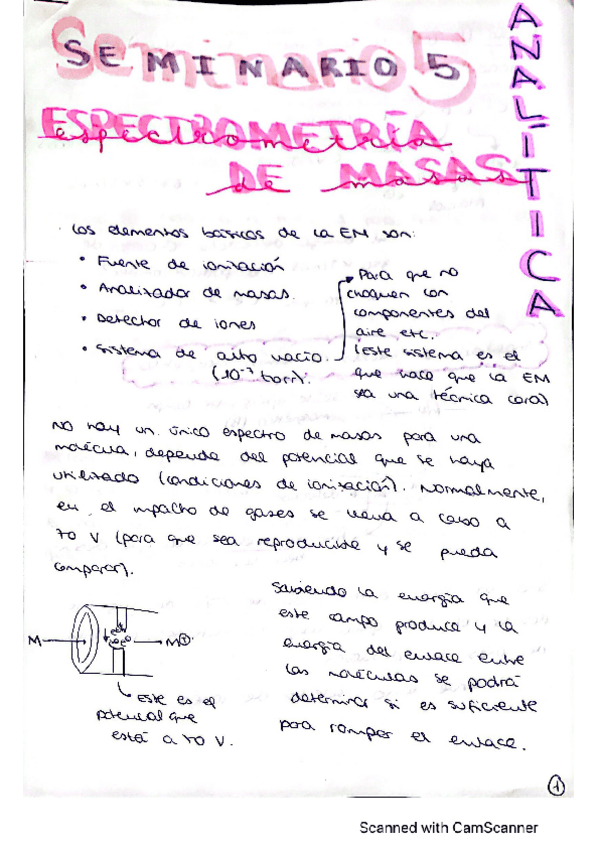 SEMINARIO 5
ANALÍTICA
ESPECTROMETRÍA
DE MASAS
Los elementos básicos de la EM son:
• Fuente de ionización
• Analizador de masas.
• Detector de iones
• Sistema de alto vacío.
(10⁻⁷ torr).
Para que no
choquen con
componentes del
aire, etc.
(este sistema es el
que hace que la EM
sea una técnica cara)
No hay un único espectro de masas para una
molécula, depende del potencial que se haya
utilizado (condiciones de ionización). Normalmente,
en el impacto de gases se lleva a cabo a
70 V (para que sea reproducible y se pueda
comparar).
M
M⊕·
Este es el
potencial que
está a 70 V.
Sabiendo la energía que
este campo produce y la
energía del enlace entre
las moléculas se podrá
determinar si es suficiente
para romper el enlace.
1
Scanned with CamScanner